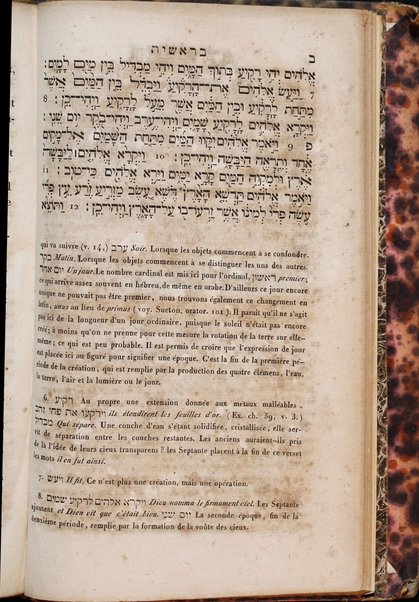 בראשית ב
אֱלֹהִים יְהִי רָקִיעַ בְּתוֹךְ הַמָּיִם וִיהִי מַבְדִּיל בֵּין מַיִם לָמָיִם׃
7 וַיַּעַשׂ אֱלֹהִים אֶת־הָרָקִיעַ וַיַּבְדֵּל בֵּין הַמַּיִם אֲשֶׁר
מִתַּחַת לָרָקִיעַ וּבֵין הַמַּיִם אֲשֶׁר מֵעַל לָרָקִיעַ וַיְהִי־כֵן׃ 8
וַיִּקְרָא אֱלֹהִים לָרָקִיעַ שָׁמָיִם וַיְהִי־עֶרֶב וַיְהִי־בֹקֶר יוֹם שֵׁנִי׃
פ 9 וַיֹּאמֶר אֱלֹהִים יִקָּווּ הַמַּיִם מִתַּחַת הַשָּׁמַיִם אֶל־מָקוֹם
אֶחָד וְתֵרָאֶה הַיַּבָּשָׁה וַיְהִי־כֵן׃ 10 וַיִּקְרָא אֱלֹהִים לַיַּבָּשָׁה
אֶרֶץ וּלְמִקְוֵה הַמַּיִם קָרָא יַמִּים וַיַּרְא אֱלֹהִים כִּי־טוֹב׃ 11
וַיֹּאמֶר אֱלֹהִים תַּדְשֵׁא הָאָרֶץ דֶּשֶׁא עֵשֶׂב מַזְרִיעַ זֶרַע עֵץ פְּרִי
עֹשֶׂה פְּרִי לְמִינוֹ אֲשֶׁר זַרְעוֹ־בוֹ עַל־הָאָרֶץ וַיְהִי־כֵן׃ 12 וַתּוֹצֵא
qui va suivre (v. 14.) ערב Soir. Lorsque les objets commencent à se confondre.
בקר Matin. Lorsque les objets commencent à se distinguer les uns des autres.
יום אחד Un jour. Le nombre cardinal est mis ici pour l'ordinal. ראשון premier;
ce qui arrive assez souvent en hebreu, de même en arabe. D'ailleurs ce jour encore
unique ne pouvait pas être premier, nous trouvons également ce changement en
latin, unus au lieu de primus (voy. Sueton, orator. 101). Il paraît qu'il ne s'agit
pas ici de la longueur d'un jour ordinaire, puisque le soleil n'était pas encore
créé; à moins qu'on ne prenne pour cette mesure la rotation de la terre sur elle-
même; ce qui est peu probable. Il est permis de croire que l'expression de jour
est placée ici au figuré pour signifier une époque. C'est la fin de la première pé-
riode de la création, qui est remplie par la production des quatre élémens, l'eau,
la terre, l'air et la lumière ou le jour.
6. רקיע Au propre une extension donnée aux métaux malleables,
וירקעו את פחי זהב ils étendirent les feuilles d'or. (Ex. ch. 39, v. 3.)
מבדיל Qui sépare. Une couche d'eau s'étant solidifiée, cristallisée, elle ser-
vit de séparation entre les couches restantes. Les anciens auraient-ils pris
de là l'idée de leurs cieux transparens? les Septante placent à la fin de ce verset
les mots il en fut ainsi.
7. ויעש Il fit. Ce n'est plus une création, mais une opération.
8. ויקרא אלהים לרקיע שמים Dieu nomma le firmament ciel. Les Septante
ajoutent et Dieu vit que c'était bien. יום שני La seconde époque, fin de la
deuxième période, remplie par la formation de la voûte des cieux.